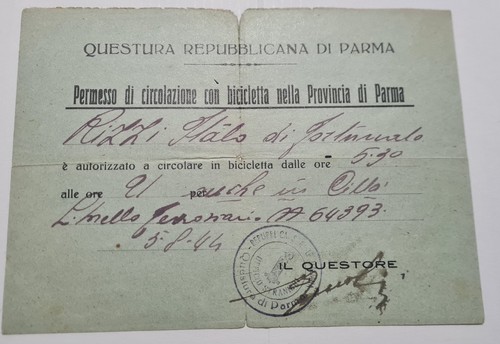 QUESTURA REPUBBLICANA DI PARMA
Permesso di circolazione con bicicletta nella Provincia di Parma
Rizzi Italo di Fortunato
è autorizzato a circolare in bicicletta dalle ore 5.30
alle ore 21 per anche in Città
Libretto Ferroviario A 64393.
5-8-44
IL QUESTORE
di Parma